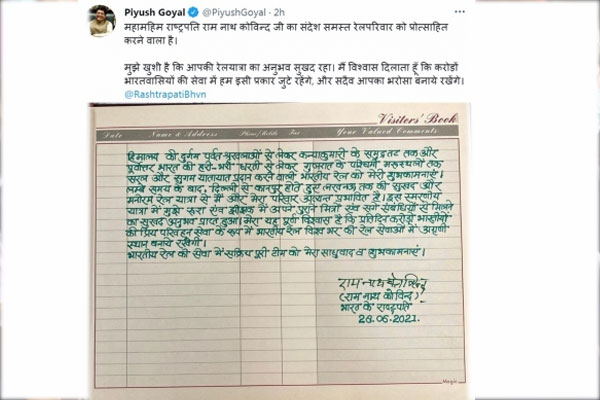 Piyush Goyal @PiyushGoyal · 2h
महामहिम राष्ट्रपति राम नाथ कोविन्द जी का संदेश समस्त रेलपरिवार को प्रोत्साहित
करने वाला है।
मुझे खुशी है कि आपकी रेलयात्रा का अनुभव सुखद रहा। मैं विश्वास दिलाता हूँ कि करोडों
भारतवासियों की सेवा में हम इसी प्रकार जुटे रहेंगे, और सदैव आपका भरोसा बनाये रखेंगे।
@RashtrapatiBhvn
Visitors' Book
Date Name & Address Phone/Mobile Fax Your Valued Comments
हिमालय की दुर्गम पर्वत श्रृंखलाओं से लेकर कन्याकुमारी के समुद्रतट तक और
पूर्वोत्तर भारत की हरी-भरी धरती से लेकर गुजरात के पश्चिमी मरुस्थलों तक
सरल और सुगम यातायात प्रदान करने वाली भारतीय रेल को मेरी शुभकामनाएं।
लम्बे समय के बाद, दिल्ली से कानपुर होते हुए लखनऊ तक की सुखद और
मनोरम रेल यात्रा से मैं और मेरा परिवार अत्यन्त प्रभावित है। इस स्मरणीय
यात्रा में मुझे रूरा एवं झींझक में अपने पुराने मित्रों एवं सगे संबंधियों से मिलने
का सुखद अनुभव प्राप्त हुआ। मेरा यह पूर्ण विश्वास है कि प्रतिदिन करोड़ों भारतीयों
की प्रिय परिवहन सेवा के रूप में भारतीय रेल विश्व भर की रेल सेवाओं में अग्रणी
स्थान बनाये रखेगी।
भारतीय रेल की सेवा में सक्रिय पूरी टीम को मेरा साधुवाद व शुभकामनाएं।
राम नाथ कोविन्द
(राम नाथ कोविन्द)
भारत के राष्ट्रपति
28.06.2021.
Magic